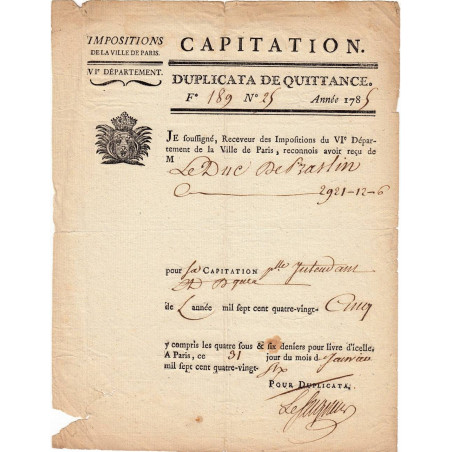 IMPOSITIONS
DE LA VILLE DE PARIS.
VIe DÉPARTEMENT.
CAPITATION.
DUPLICATA DE QUITTANCE.
Fo 189 No 25 Année 1785
JE soussigné, Receveur des Impositions du VIe Dépar-
tement de la Ville de Paris, reconnois avoir reçu de
M Le Duc De Praslin
2921-12-6
pour sa CAPITATION
de L'année mil sept cent quatre-vingt- Cinq
y compris les quatre sous & six deniers pour livre d'icelle,
A Paris, ce 31 jour du mois de Janvier
mil sept cent quatre-vingt- six
POUR DUPLICATA.